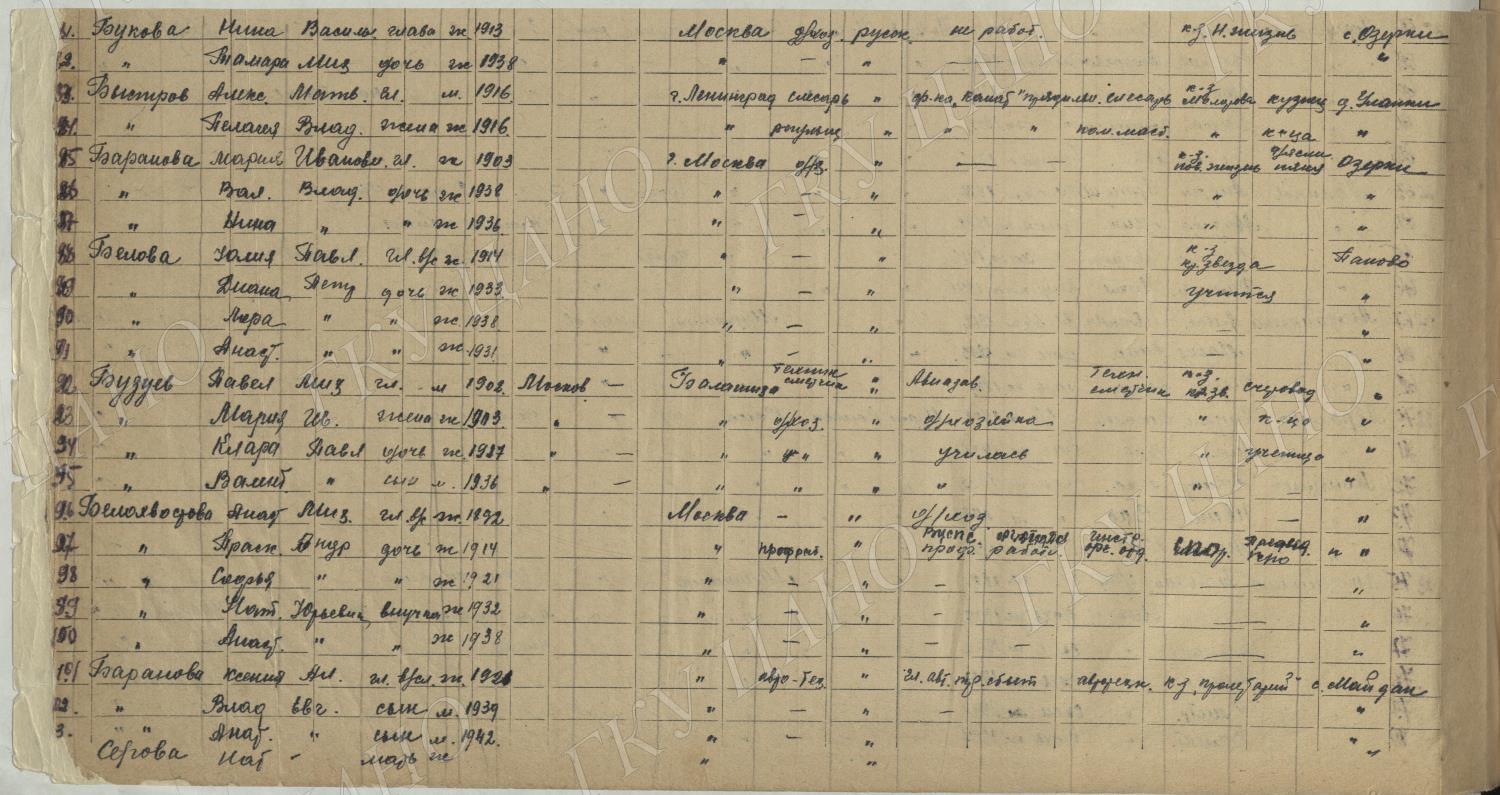 81. Букова Нина Васил. глава ж 1913 Москва д/хоз. русск. не работ. к-з. Н. жизнь с. Озерки
82. " Тамара Мих дочь ж 1938 " — " "
83. Быстров Алекс. Матв. гл. м. 1916 г. Ленинград слесарь " ф-ка "Канат" слесарь к-з кузнец д.
84. " Пелагея Влад. жена ж 1916 " " " " пом. маст. " к-ца "
85 Баранова Мария Ивановн. гл. ж 1903 г. Москва д/х. " — — к-з. нов. жизнь д/ясли няня Озерки
86 " Вал. Влад. дочь ж 1938 " — " " "
87 " Нина " " ж 1936 " — " " "
88 Белова Юлия Павл. гл. в/с ж. 1914 " — " к-з кр. звезда Паново
89 " Диана Петр дочь ж 1933 " — " учится "
90 " Лора " " ж 1938 " — " — "
91 " Анаст. " " ж 1931 " — " — "
92 Бузуев Павел Мих гл. - м 1902 Москов — Балашиха техник сметчик " Авиазав. техн. сметчик к-з. кр. зв. счетовод "
93 " Мария Ив. жена ж 1903 " — " д/хоз. " д/хозяйка " к-ца "
94 " Клара Павл дочь ж 1927 " — " " " училась " ученица "
95 " Валент. " сын м. 1936 " — " " " " " — "
96 Белохвостова Анаст Мих. гл. в/с ж. 1892 Москва — " д/хоз — "
97 " Праск. Андр дочь ж 1914 " профраб. " ВЦСПС проф. работн. инстр. орг. отд. " "
98 " Софья " " ж 1921 " — " — "
99 " Нат. Юрьевна внучка ж 1932 " — " — "
100 " Анаст. " " ж 1938 " — " — — — "
101 Баранова Ксения Ал. гл. в/сл. ж. 1920 " авто-тех. " гл. авт. тр. сбыт автотехн. к-з "Пролетарий" с. Майдан
102. " Влад Евг. сын м. 1939 " — " — — "
3. " Анат. " сын м. 1942 " — " "
Серова Нат - мать ж " " "
ГКУ ЦАНО